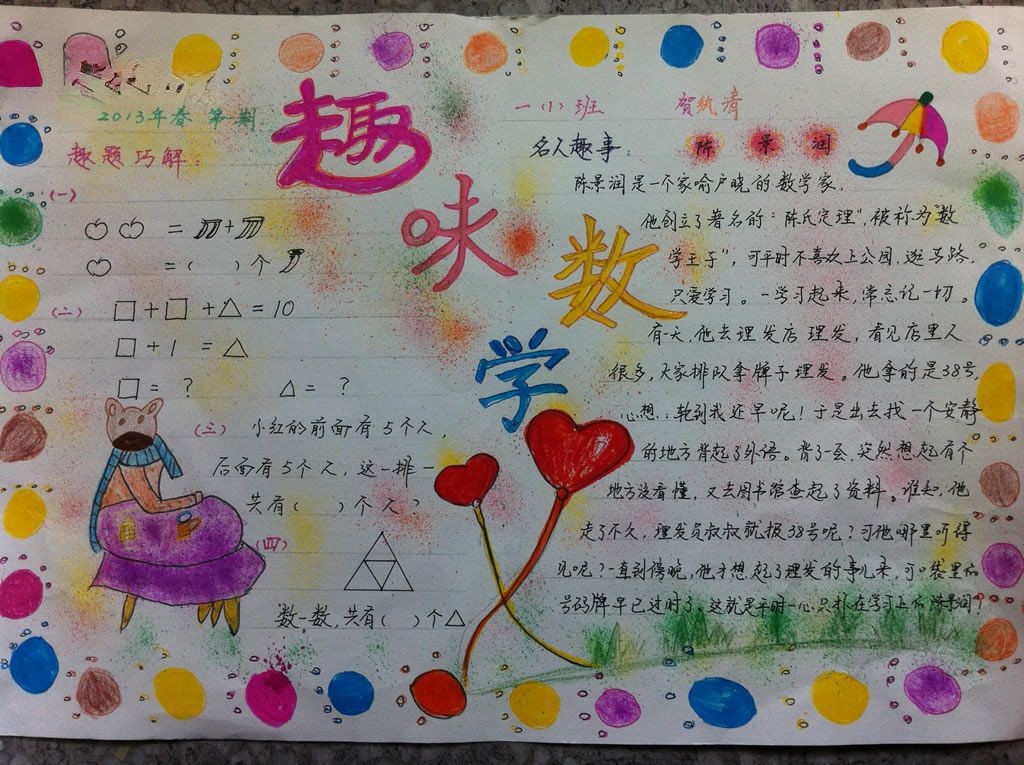 2013年春 第一期
趣味数学
趣题巧解：
(一)
= +
=( )个
(二) □+□+△=10
□+1 =△
□= ? △= ?
(三) 小红的前面有5个人,
后面有5个人,这一排一
共有( )个人?
(四)
数一数,共有( )个△
一(1)班
名人趣事： 陈景润
陈景润是一个家喻户晓的数学家,
他创立了著名的“陈氏定理”,被称为“数
学王子”,可平时不喜欢上公园,逛马路,
只爱学习。一学习起来,常忘记一切。
有一天,他去理发店理发,看见店里人
很多,大家排队拿牌子理发。他拿的是38号,
心想:轮到我还早呢!于是出去找一个安静
的地方背起了外语。背了一会,突然想起有个
地方没看懂,又去图书馆查起了资料。谁知,他
走了不久,理发员叔叔就报38号呢?可他哪里听得
见呢?一直到傍晚,他才想起了理发的事儿来,可口袋里的
号码牌早已过时了。这就是平时一心只扑在学习上的陈景润!